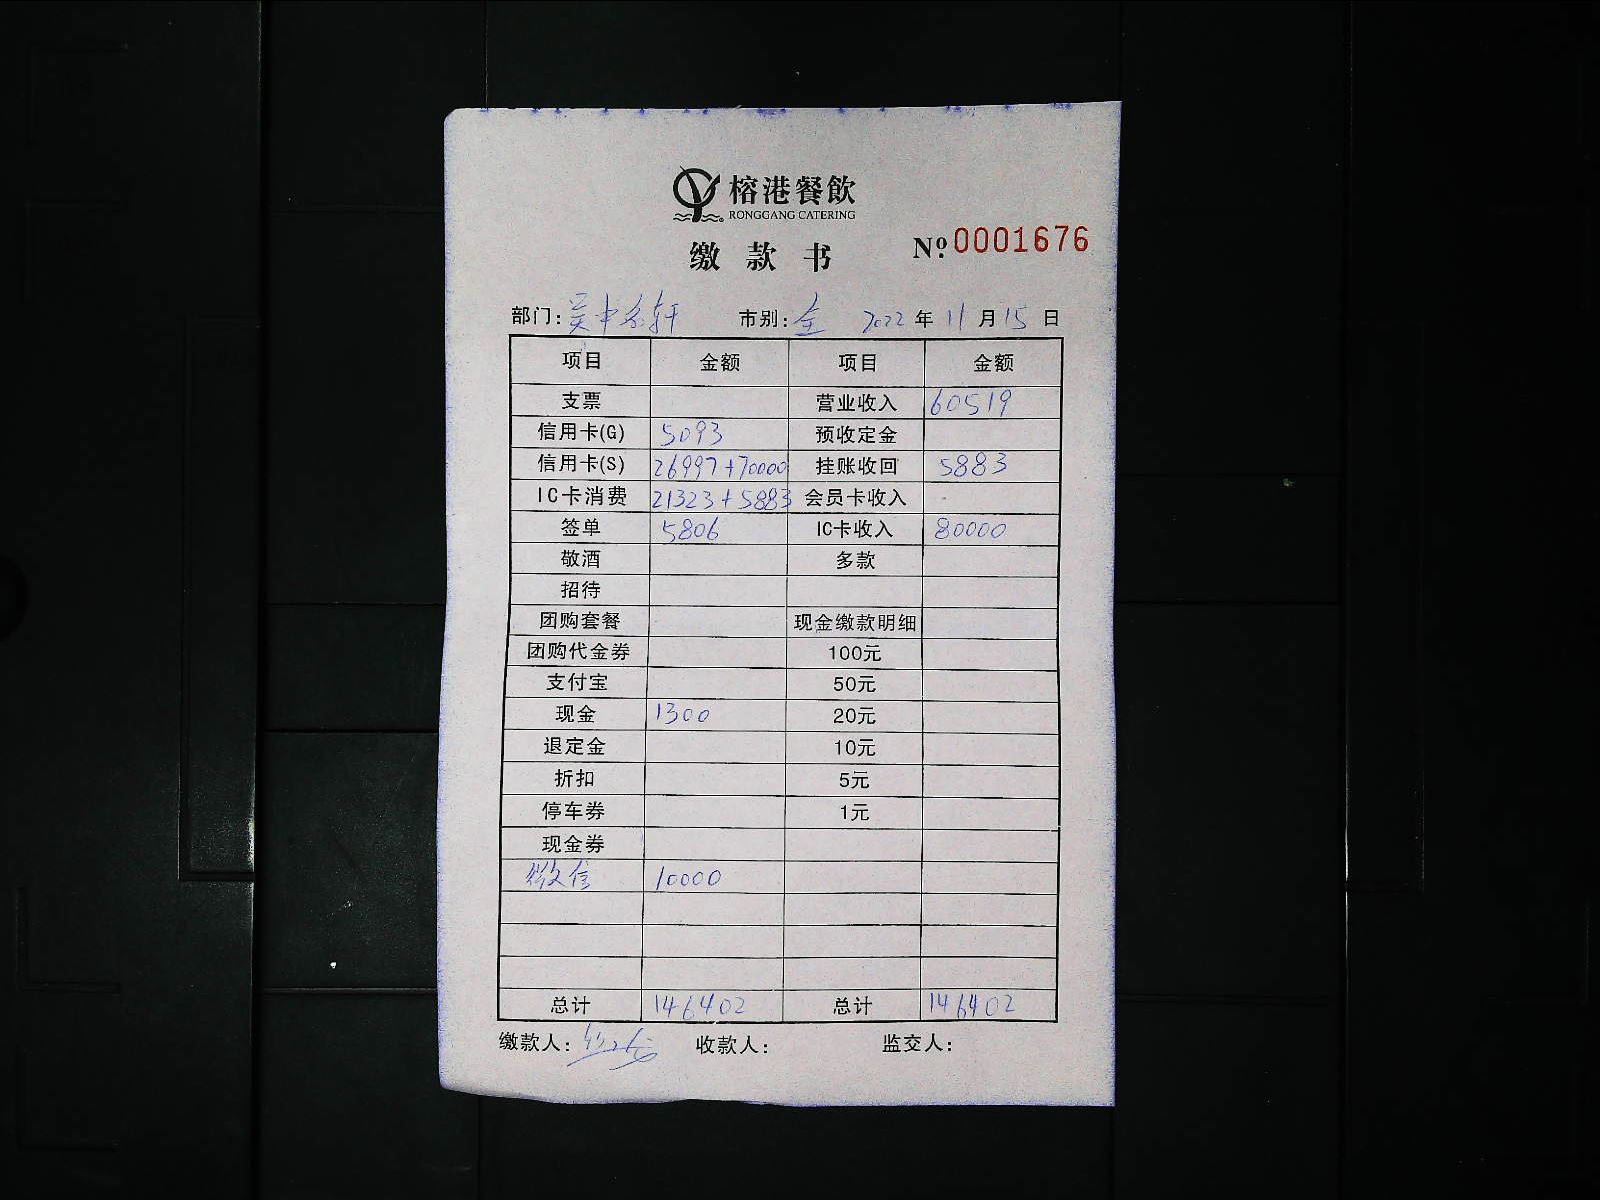 榕港餐飲
RONGGANG CATERING
缴款书 Nº 0001676
部门: 吴中名轩 市别: 全 2022年11月15日
项目 金额 项目 金额
支票 营业收入 60519
信用卡(G) 5093 预收定金
信用卡(S) 26997+70000 挂账收回 5883
IC卡消费 21323+5883 会员卡收入
签单 5806 IC卡收入 80000
敬酒 多款
招待
团购套餐 现金缴款明细
团购代金券 100元
支付宝 50元
现金 1300 20元
退定金 10元
折扣 5元
停车券 1元
现金券
微信 10000
总计 146402 总计 146402
缴款人: 收款人: 监交人: